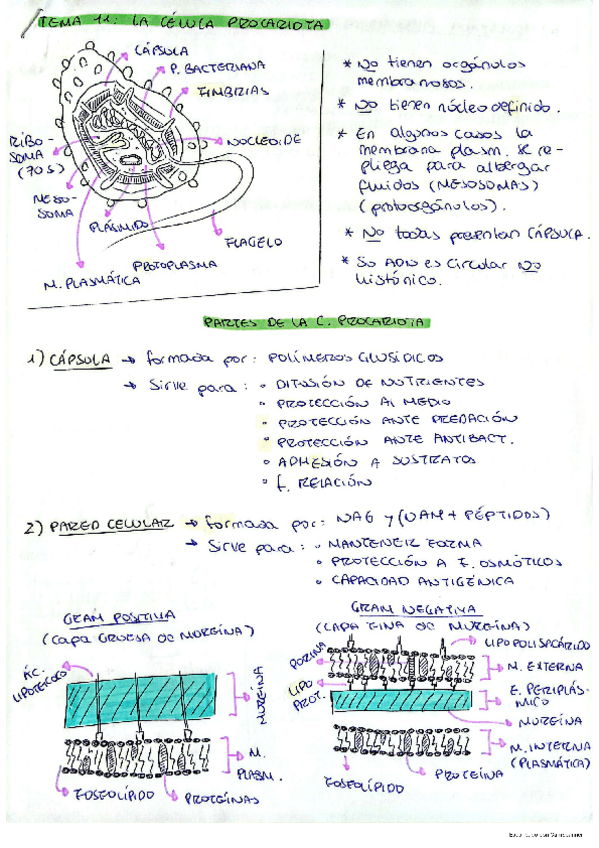 TEMA 11: LA CÉLULA PROCARIOTA
CÁPSULA
P. BACTERIANA
FIMBRIAS
RIBO-
SOMA
(70 S)
NUCLEOIDE
MESO-
SOMA
PLÁSMIDO
FLAGELO
PROTOPLASMA
M. PLASMÁTICA
* No tienen orgánulos
membranosos.
* No tienen núcleo definido.
* En algunos casos la
membrana plasm. se re-
pliega para albergar
fluidos (MESOSOMAS)
(protoorgánulos).
* No todas presentan CÁPSULA.
* Su ADN es circular no
histónico.
PARTES DE LA C. PROCARIOTA
1) CÁPSULA → formada por: POLÍMEROS GLUSÍDICOS
→ Sirve para: • DIFUSIÓN DE NUTRIENTES
• PROTECCIÓN AL MEDIO
• PROTECCIÓN ANTE PREDACIÓN
• PROTECCIÓN ANTE ANTIBACT.
• ADHESIÓN A SUSTRATOS
• f. RELACIÓN
2) PARED CELULAR → formada por: NAG y (NAM + PÉPTIDOS)
→ Sirve para: • MANTENER FORMA
• PROTECCIÓN A F. OSMÓTICOS
• CAPACIDAD ANTIGÉNICA
GRAM POSITIVA
(CAPA GRUESA DE MUREÍNA)
ÁC.
LIPOTEICOICO
MUREÍNA
M.
PLASM.
FOSFOLÍPIDO
PROTEÍNAS
GRAM NEGATIVA
(CAPA FINA DE MUREÍNA)
LIPOPOLISACÁRIDO
PORINA
M. EXTERNA
LIPO
PROT.
E. PERIPLÁS-
MICO
MUREÍNA
M. INTERNA
(PLASMÁTICA)
FOSFOLÍPIDO
PROTEÍNA